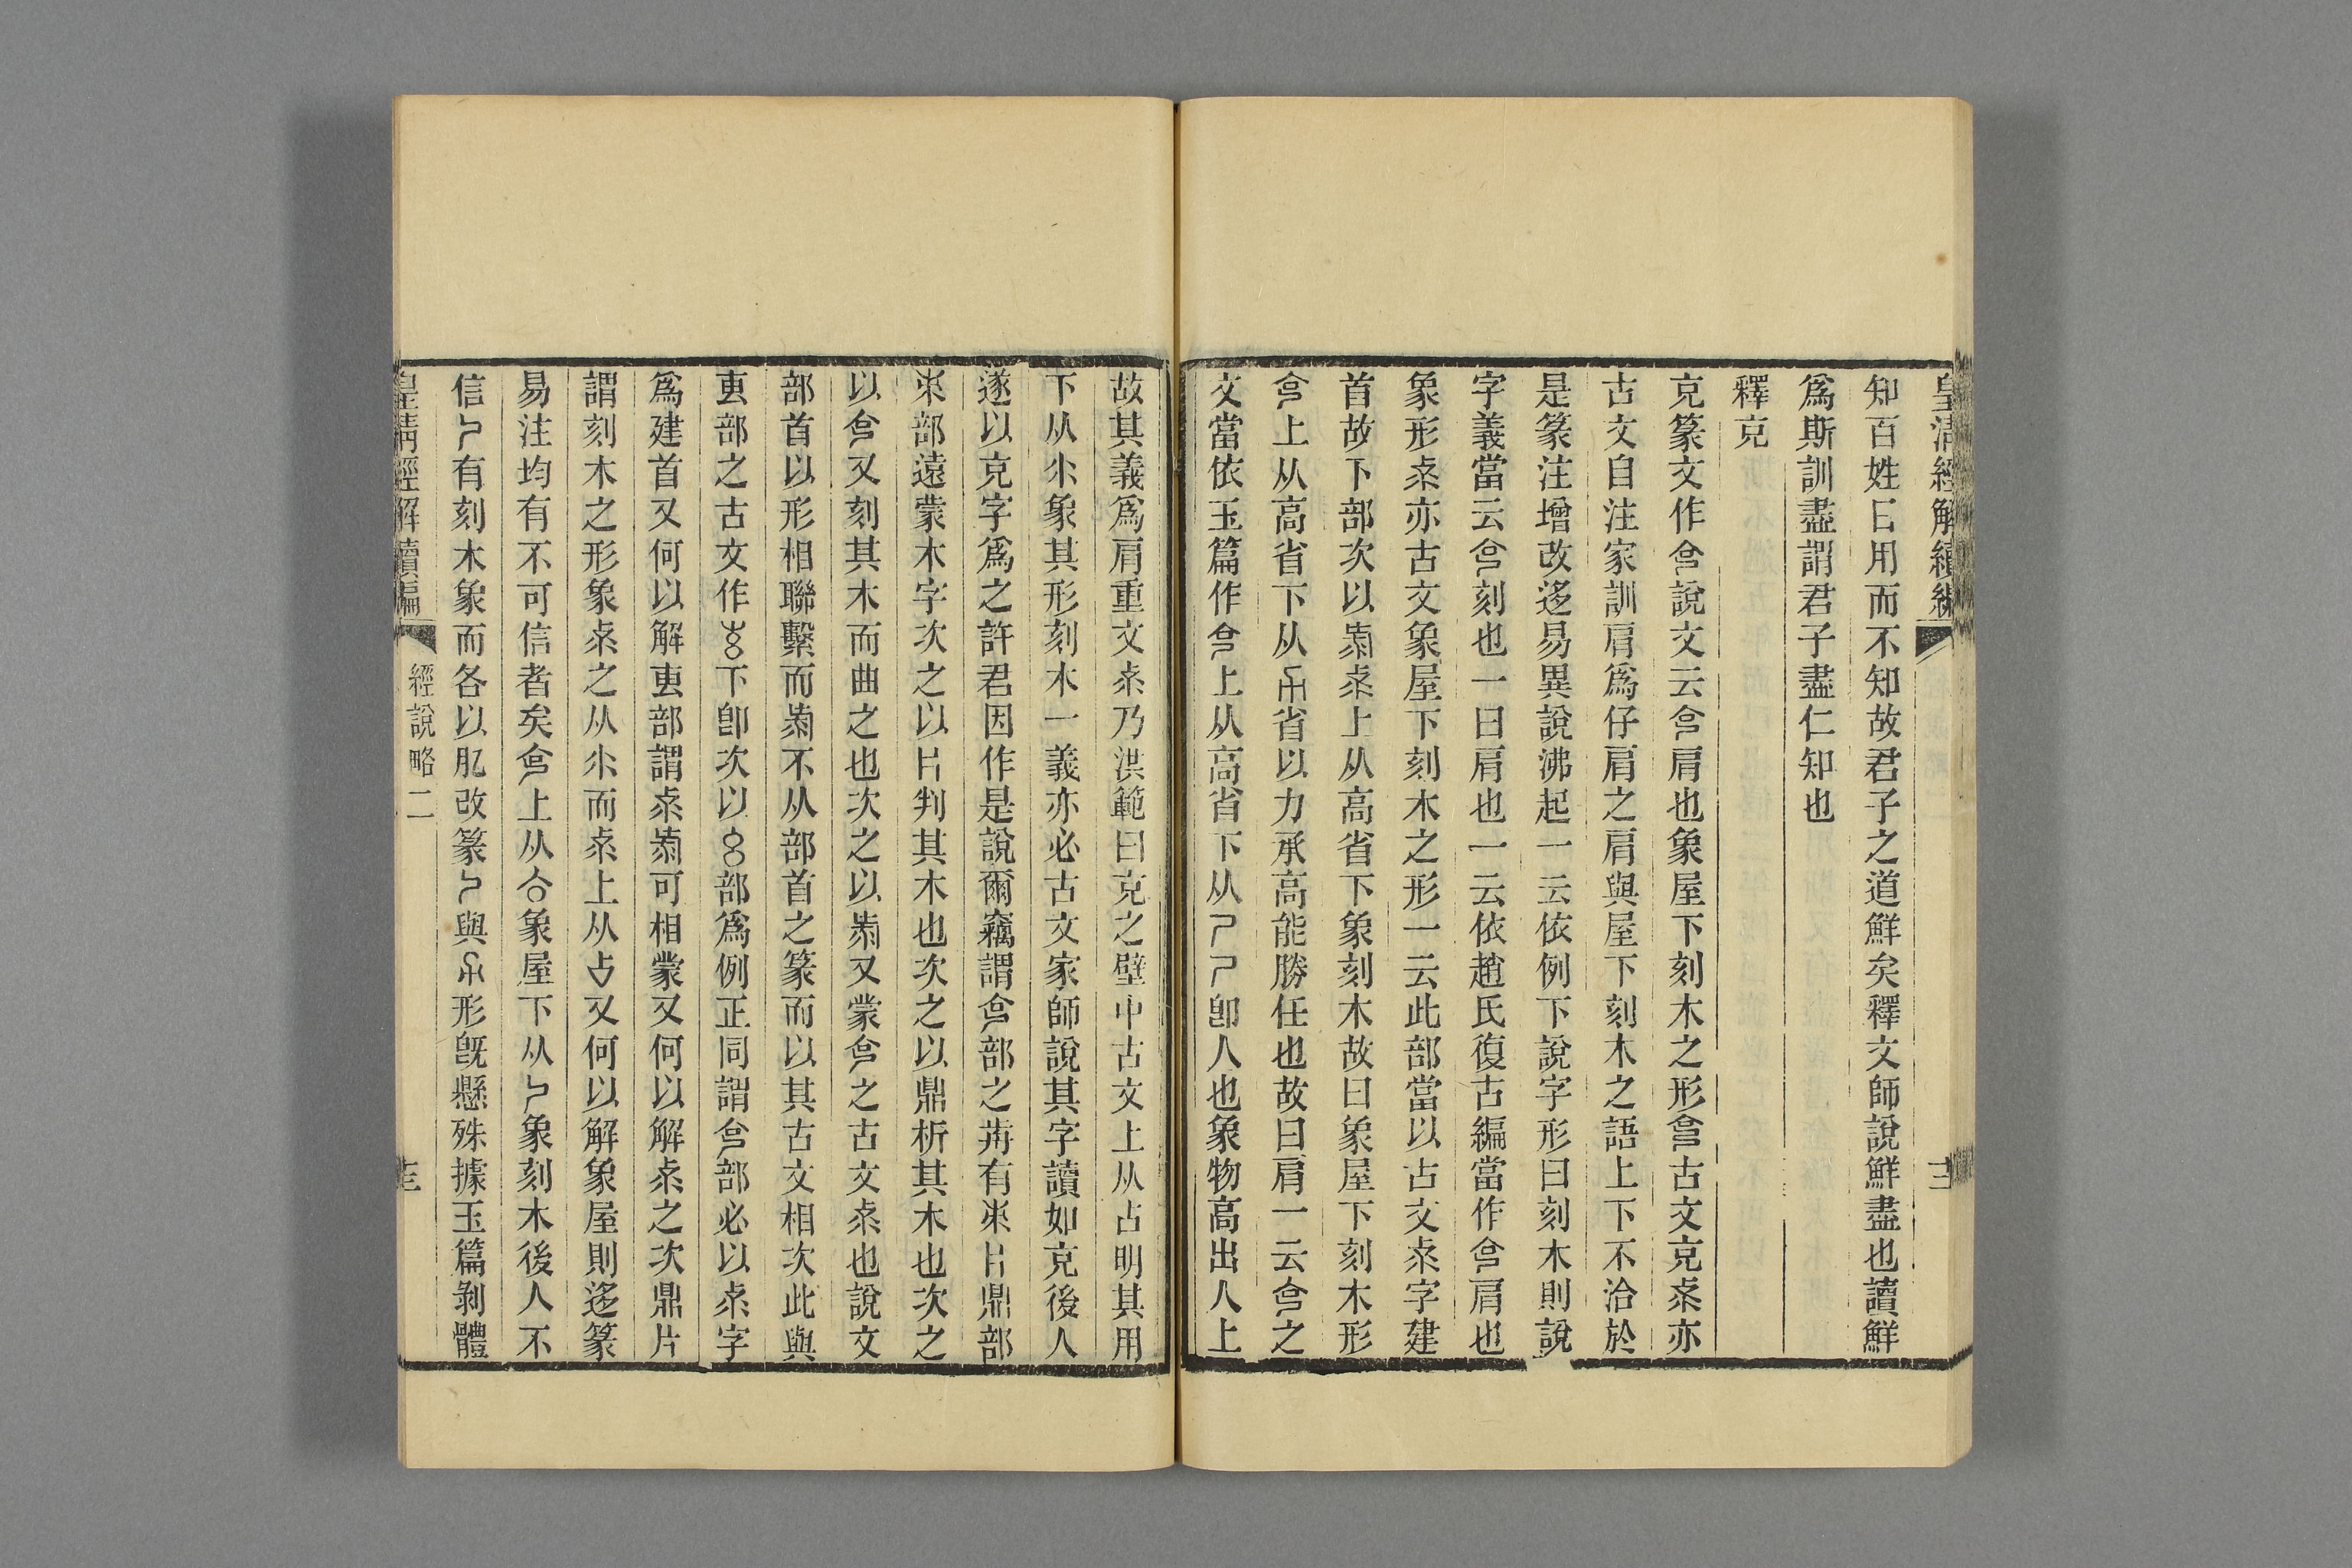 皇淸經解續編
知百姓日用而不知故君子之道鮮矣釋文師說鮮盡也讀鮮
爲斯訓盡謂君子盡仁知也
釋克
克篆文作說文云肩也象屋下刻木之形古文克亦
古文自注家訓肩爲仔肩之肩與屋下刻木之語上下不洽於
是篆注增改迻易異說沸起一云依例下說字形曰刻木則說
字義當云刻也一曰肩也一云依趙氏復古編當作肩也
象形亦古文象屋下刻木之形一云此部當以古文字建
首故下部次以上从高省下象刻木故曰象屋下刻木形
上从高省下从省以力承高能勝任也故曰肩一云之
文當依玉篇作上从高省下从卽人也象物高出人上
故其義爲肩重文乃洪範曰克之壁中古文上从占明其用
下从象其形刻木一義亦必古文家師說其字讀如克後人
遂以克字爲之許君因作是說爾竊謂部之歬有片鼎部
部遠蒙木字次之以片判其木也次之以鼎析其木也次之
以又刻其木而曲之也次之以又蒙之古文也說文
部首以形相聯繫而不从部首之篆而以其古文相次此與
叀部之古文作下卽次以部爲例正同謂部必以字
爲建首又何以解叀部謂可相蒙又何以解之次鼎片
謂刻木之形象之从而上从占又何以解象屋則迻篆
易注均有不可信者矣上从象屋下从象刻木後人不
信有刻木象而各以肊改篆與形旣懸殊據玉篇剝體
皇淸經解續編
經說略二